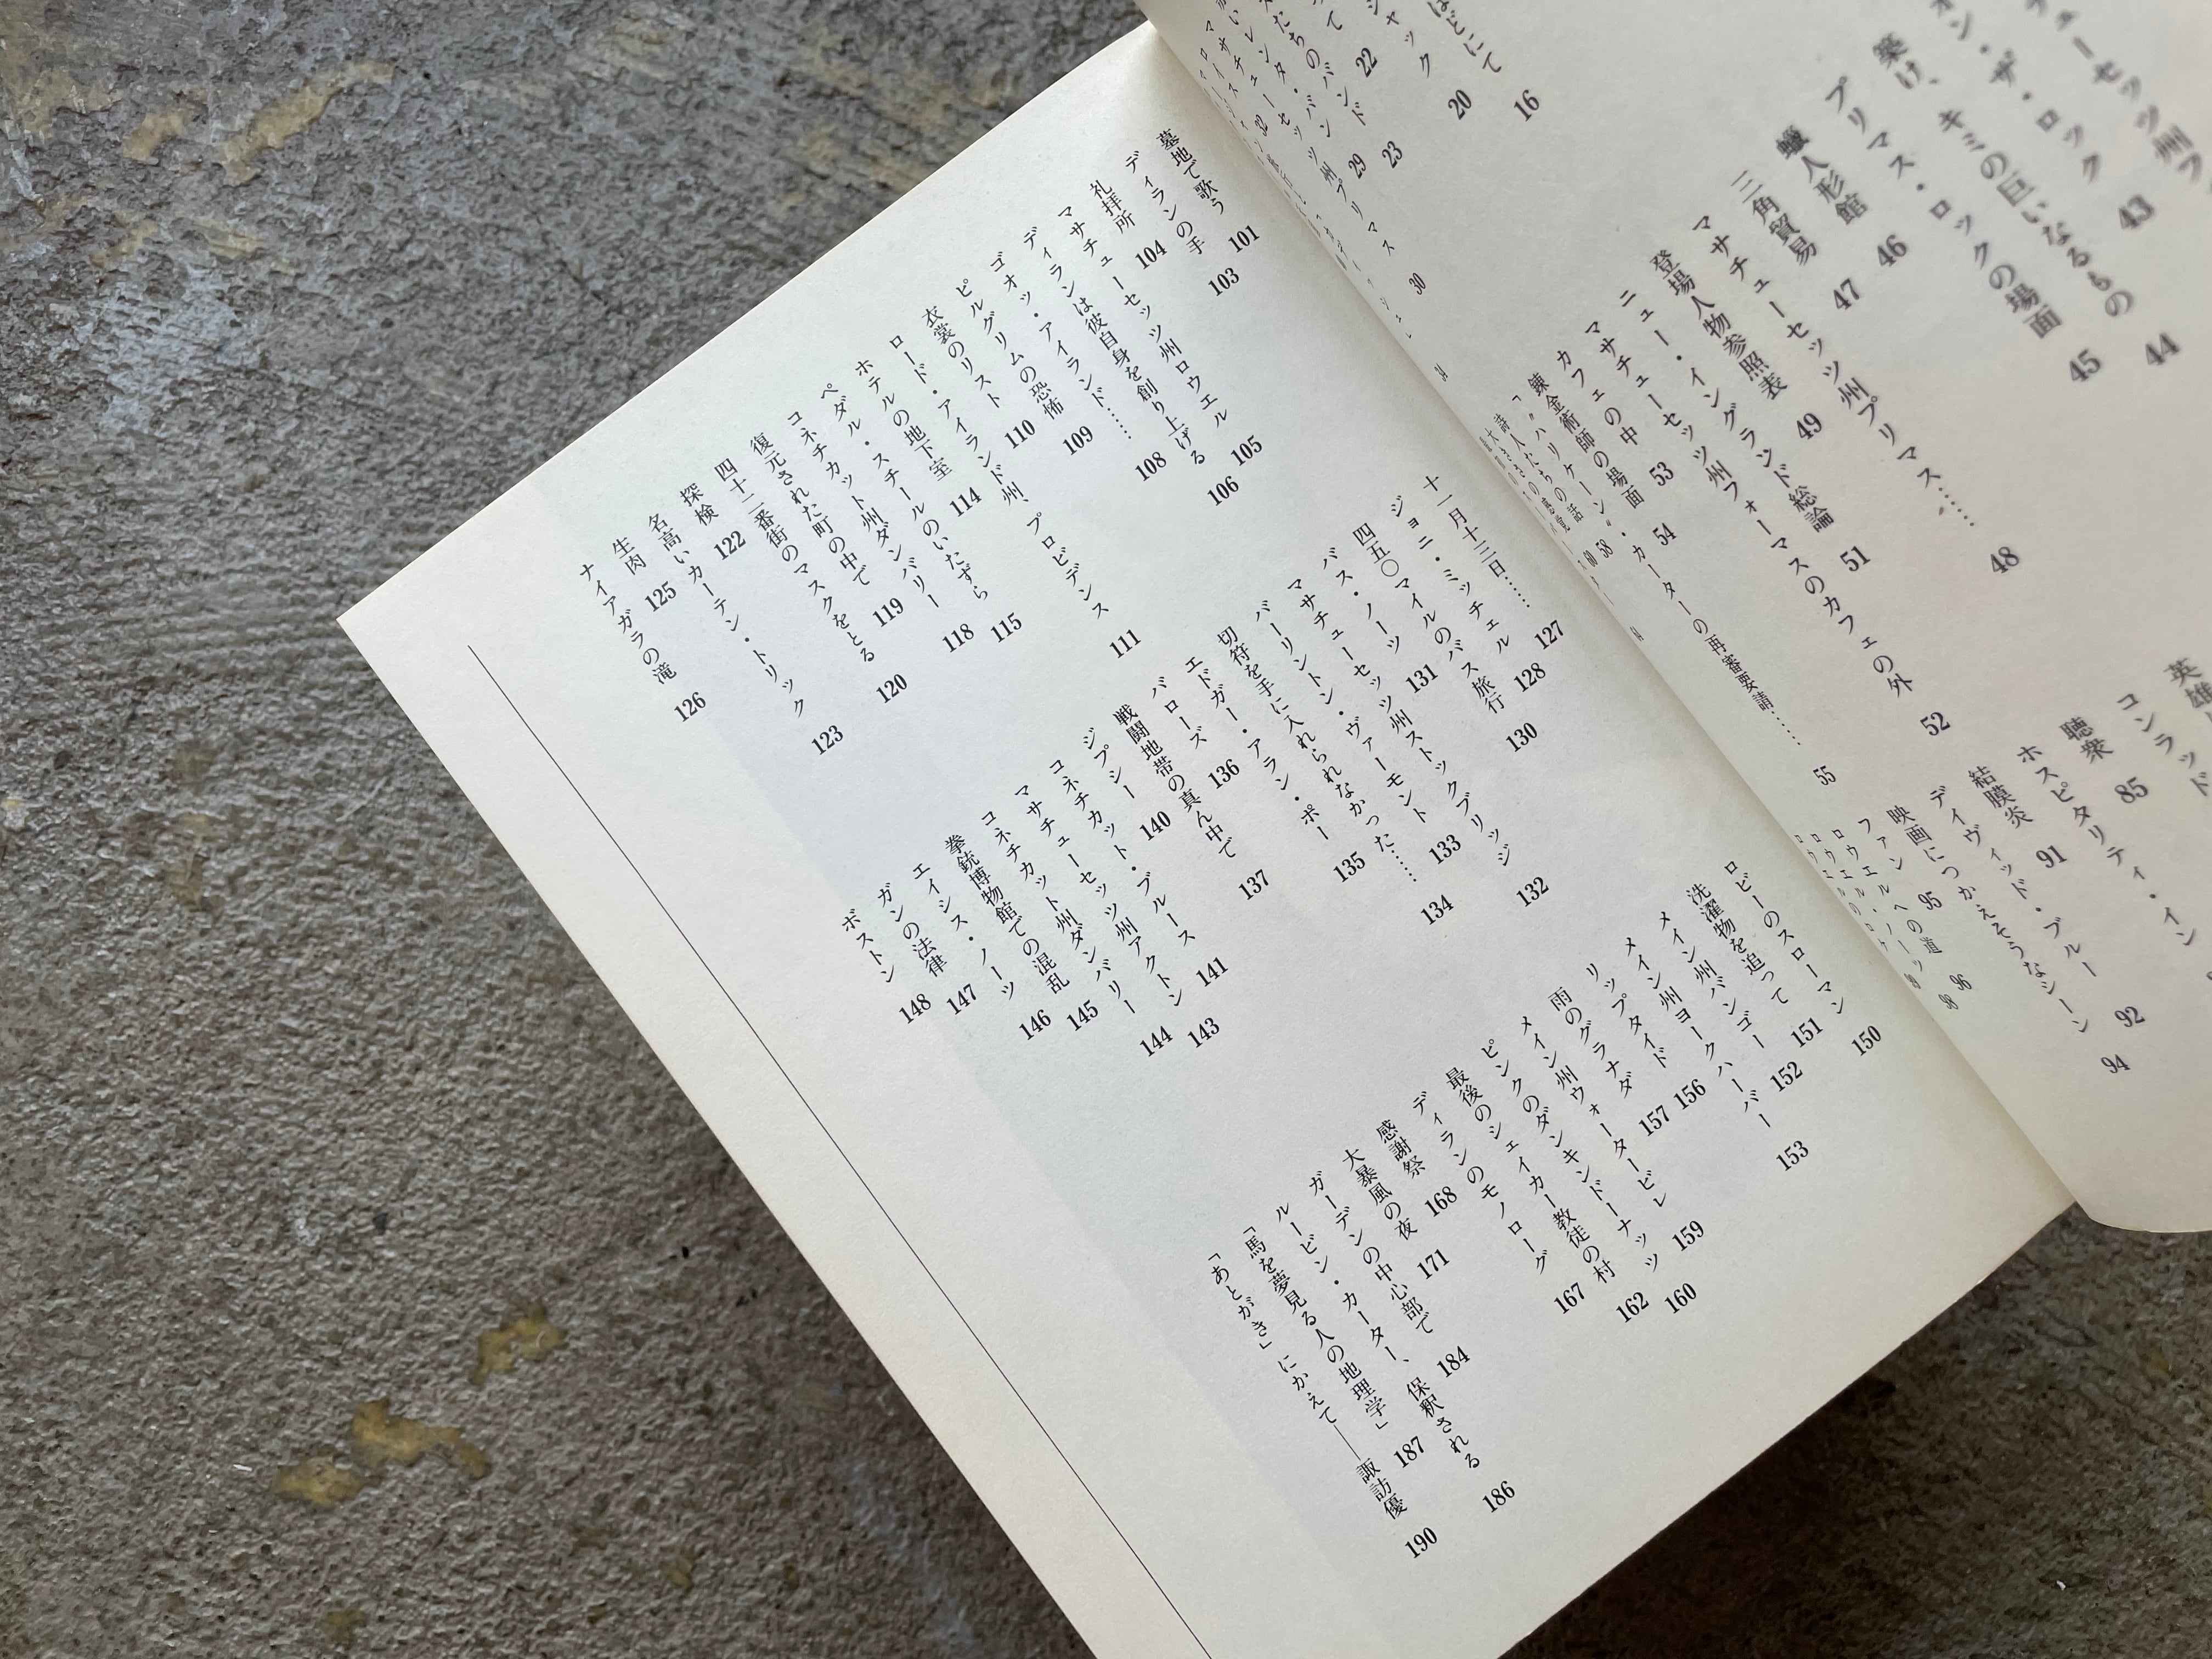 ほどにて 16
ジャック 20
たちのバンド 22
レンタ・バン 23
マサチューセッツ州プリマス 29
30
32
34
チューセッツ州フ
オン・ザ・ロック 43
築け、キミの巨いなるもの 44
プリマス・ロックの場面 45
蠟人形館 46
三角貿易 47
マサチューセッツ州プリマス…… 48
登場人物参照表 49
ニュー・イングランド総論 51
マサチューセッツ州フォーマスのカフェの外 52
カフェの中 53
錬金術師の場面 54
「〝ハリケーン〟・カーターの再審要請…… 55
詩人たちの話 58
60
英雄
コンラッド
聴衆 85
ホスピタリティ・イン
結膜炎 91
デイヴィッド・ブルー 92
映画につかえそうなシーン 94
ファン 95
ロウエルへの道 96
ロウエル・ノーツ 98
墓地で歌う 101
ディランの手 103
礼拝所 104
マサチューセッツ州ロウエル 105
ディランは彼自身を創り上げる 106
ゴオッ・アイランド…… 108
ピルグリムの恐怖 109
衣裳のリスト 110
ロード・アイランド州、プロビデンス 111
ホテルの地下室 114
ペダル・スチールのいたずら 115
コネチカット州ダンバリー 118
復元された町の中で 119
四十二番街のマスクをとる 120
探検 122
名高いカーテン・トリック 123
生肉 125
ナイアガラの滝 126
十一月十三日…… 127
ジョニ・ミッチェル 128
四五〇マイルのバス旅行 130
バス・ノーツ 131
マサチューセッツ州ストックブリッジ 132
バーリントン・ヴァーモント 133
切符を手に入れられなかった…… 134
エドガー・アラン・ポー 135
バローズ 136
戦闘地帯の真ん中で 137
ジプシー 140
コネチカット・ブルース 141
マサチューセッツ州アクトン 143
コネチカット州ダンバリー 144
拳銃博物館での混乱 145
エイシス・ノーツ 146
ガンの法律 147
ボストン 148
ロビーのスローマン 150
洗濯物を追って 151
メイン州バンゴー 152
メイン州ヨークハーバー 153
リップタイド 156
雨のグラナダ 157
メイン州ウォータービレ 159
ピンクのダンキンドーナッツ 160
最後のシェイカー教徒の村 162
ディランのモノローグ 167
感謝祭 168
大暴風の夜 171
ガーデンの中心部で 184
ルービン・カーター、保釈される 186
「馬を夢見る人の地理学」 187
「あとがき」にかえて――諏訪優 190